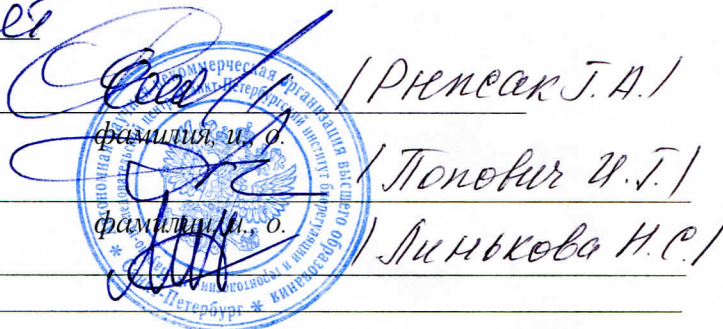 ей
/ Рыжак Г.А. /
фамилия, и., о.
/ Попович И.Г. /
фамилия, и., о.
/ Линькова Н.С. /
Автономная научная некоммерческая организация высшего образования
Санкт-Петербургский институт биорегуляции и геронтологии
* Санкт-Петербург *